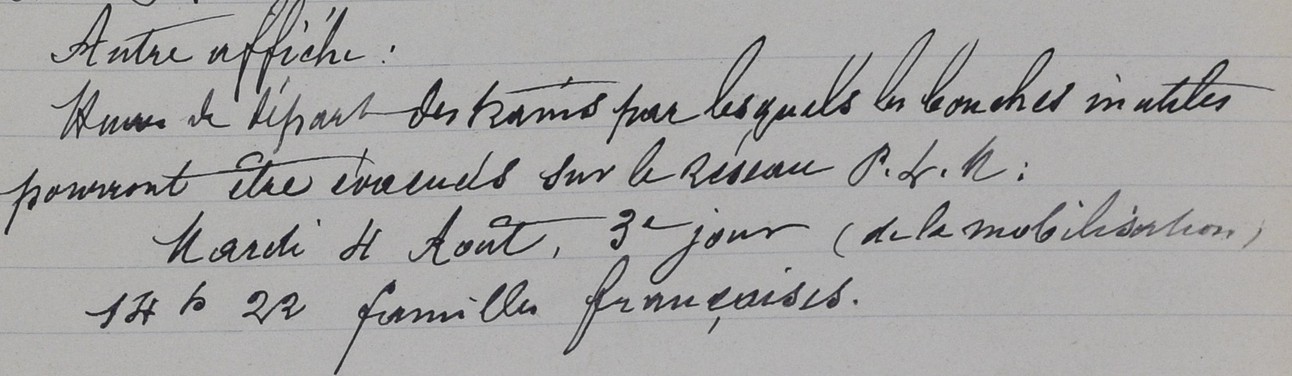 Autre affiche :
Heures de départ des trains par lesquels les bouches inutiles
pourront être évacués sur le réseau P. L. M :
Mardi 4 Août, 3e jour (de la mobilisation)
14 h 22 familles françaises.